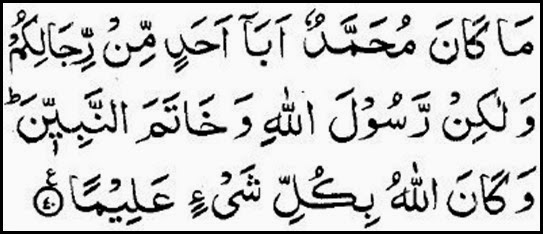 مَا كَانَ مُحَمَّدٌ اَبَآ اَحَدٍ مِّنْ رِّجَالِكُمْ
وَلٰكِنْ رَّسُوْلَ اللّٰهِ وَخَاتَمَ النَّبِيّٖنَ ؕ
وَكَانَ اللّٰهُ بِكُلِّ شَیْءٍ عَلِيْمًا ۧ ﴿۴۰﴾